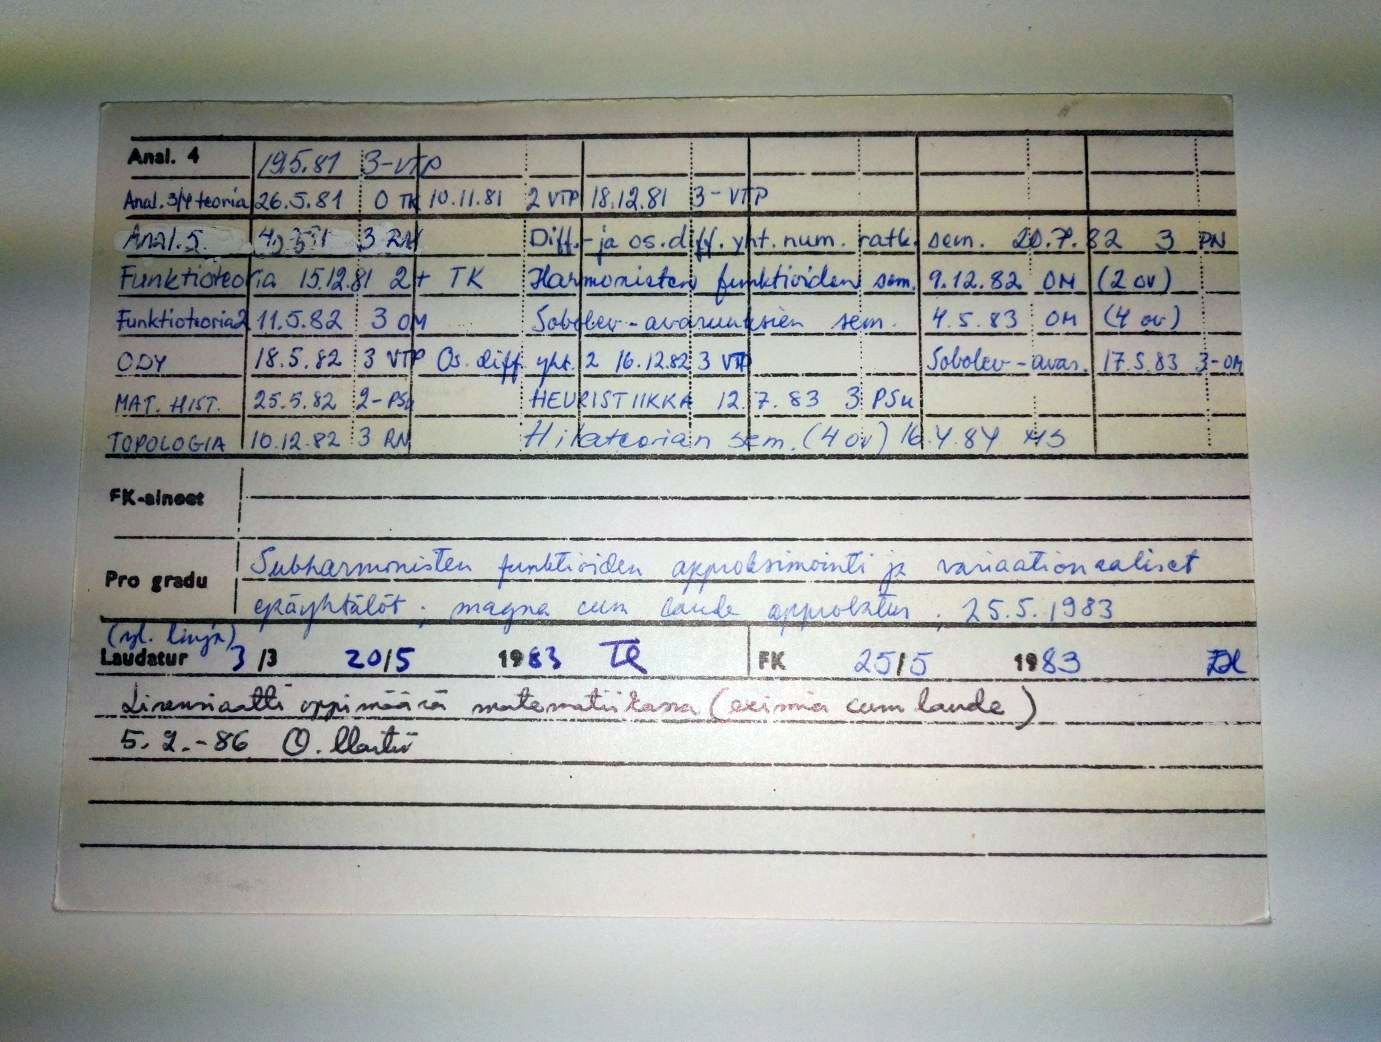 Anal. 4 19.5.81 3- VTP
Anal. 3/4 teoria 26.5.81 0 TK 10.11.81 2 VTP 18.12.81 3- VTP
Anal. 5. 3 RN Diff.- ja os.diff.yht. num. ratk. sem. 20.7.82 3 PN
Funktioteoria 15.12.81 2+ TK Harmonisten funktioiden sem. 9.12.82 OM (2 ov)
Funktioteoria 2 11.5.82 3 OM Sobolev-avaruuksien sem. 4.5.83 OM (4 ov)
ODY 18.5.82 3 VTP Os. diff. yht. 2 16.12.82 3 VTP Sobolev-avar. 17.5.83 3- OM
MAT. HIST. 25.5.82 2- PSu HEURISTIIKKA 12.7.83 3 PSu
TOPOLOGIA 10.12.82 3 RN Hilateorian sem. (4 ov) 16.4.84
FK-aineet
Subharmonisten funktioiden approksimointi ja variaationaaliset
Pro gradu
epäyhtälöt; magna cum laude approbatur, 25.5.1983
(yl. linja)
Laudatur 3/3 20/5 1983 FK 25/5 1983
Lisensiaatti oppimäärä matematiikassa (eximia cum laude)
5.2.-86 O. Martio